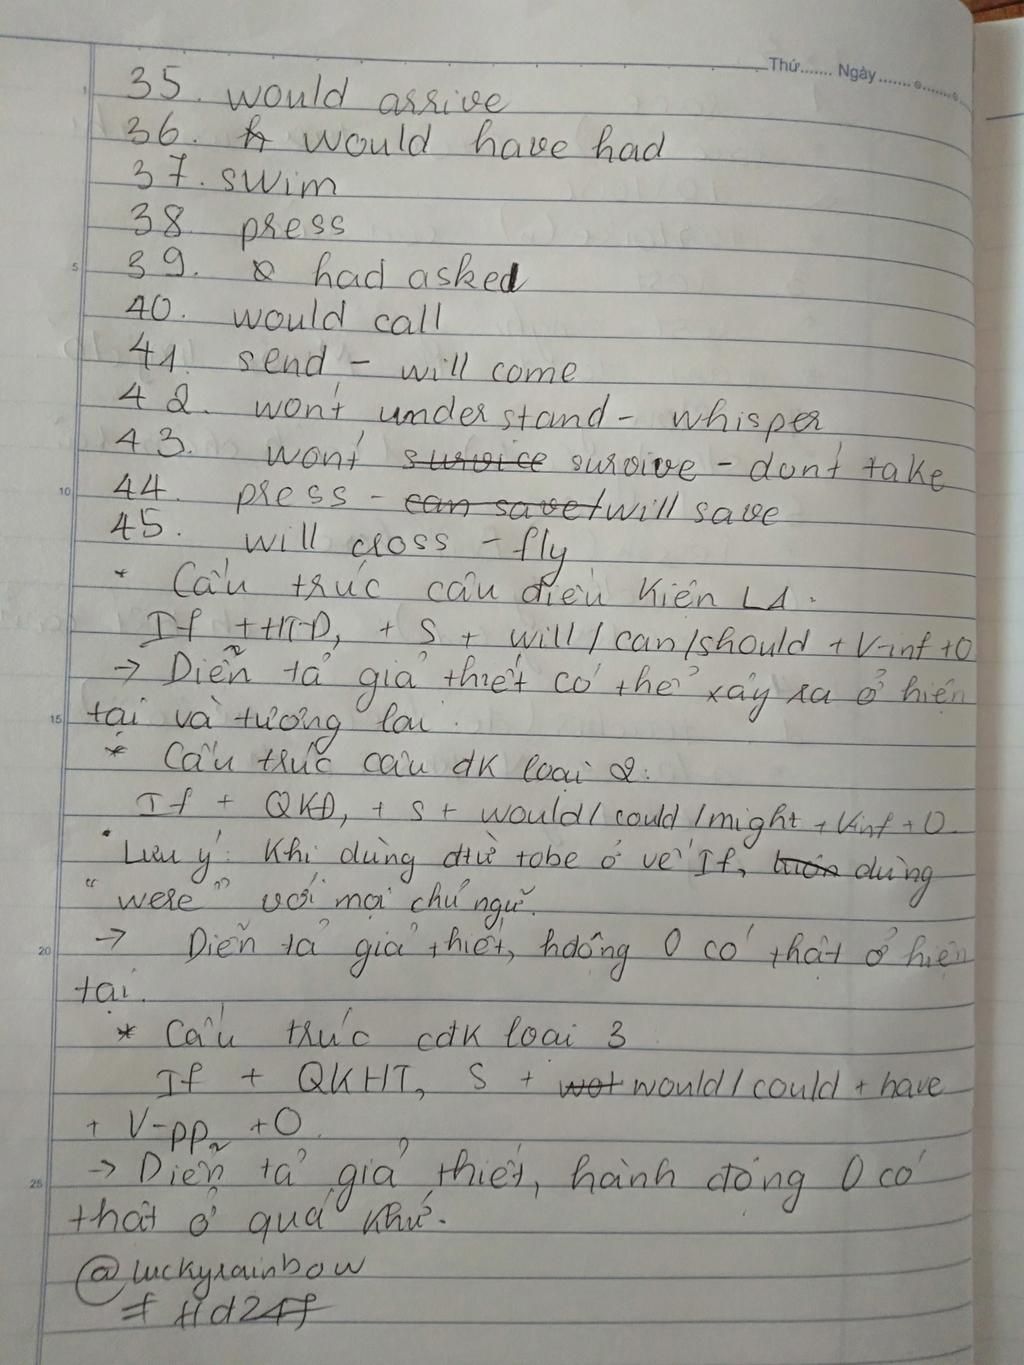 Thứ....... Ngày...............
35. would arrive
36. would have had
37. swim
38 press
39. had asked
40. would call
41. send - will come
42. won't understand - whisper
43. won't survice survive - don't take
44. press - can save / will save
45. will cross - fly
* Cấu trúc câu điều kiện L1.
If + HTĐ, + S + will / can / should + V-inf + O
→ Diễn tả giả thiết có thể xảy ra ở hiện
tại và tương lai.
* Cấu trúc câu đk loại 2:
If + QKĐ, + S + would / could / might + Vinf + O.
• Lưu ý: Khi dùng đtừ tobe ở vế If, luôn dùng
"were" với mọi chủ ngữ.
→ Diễn tả giả thiết, hđộng 0 có thật ở hiện
tại.
* Cấu trúc cđk loại 3
If + QKHT, S + wot would / could + have
+ V-pp2 + O.
→ Diễn tả giả thiết, hành động 0 có
thật ở quá khứ.
@luckyrainbow
# Hd24f
5
10
15
20
25